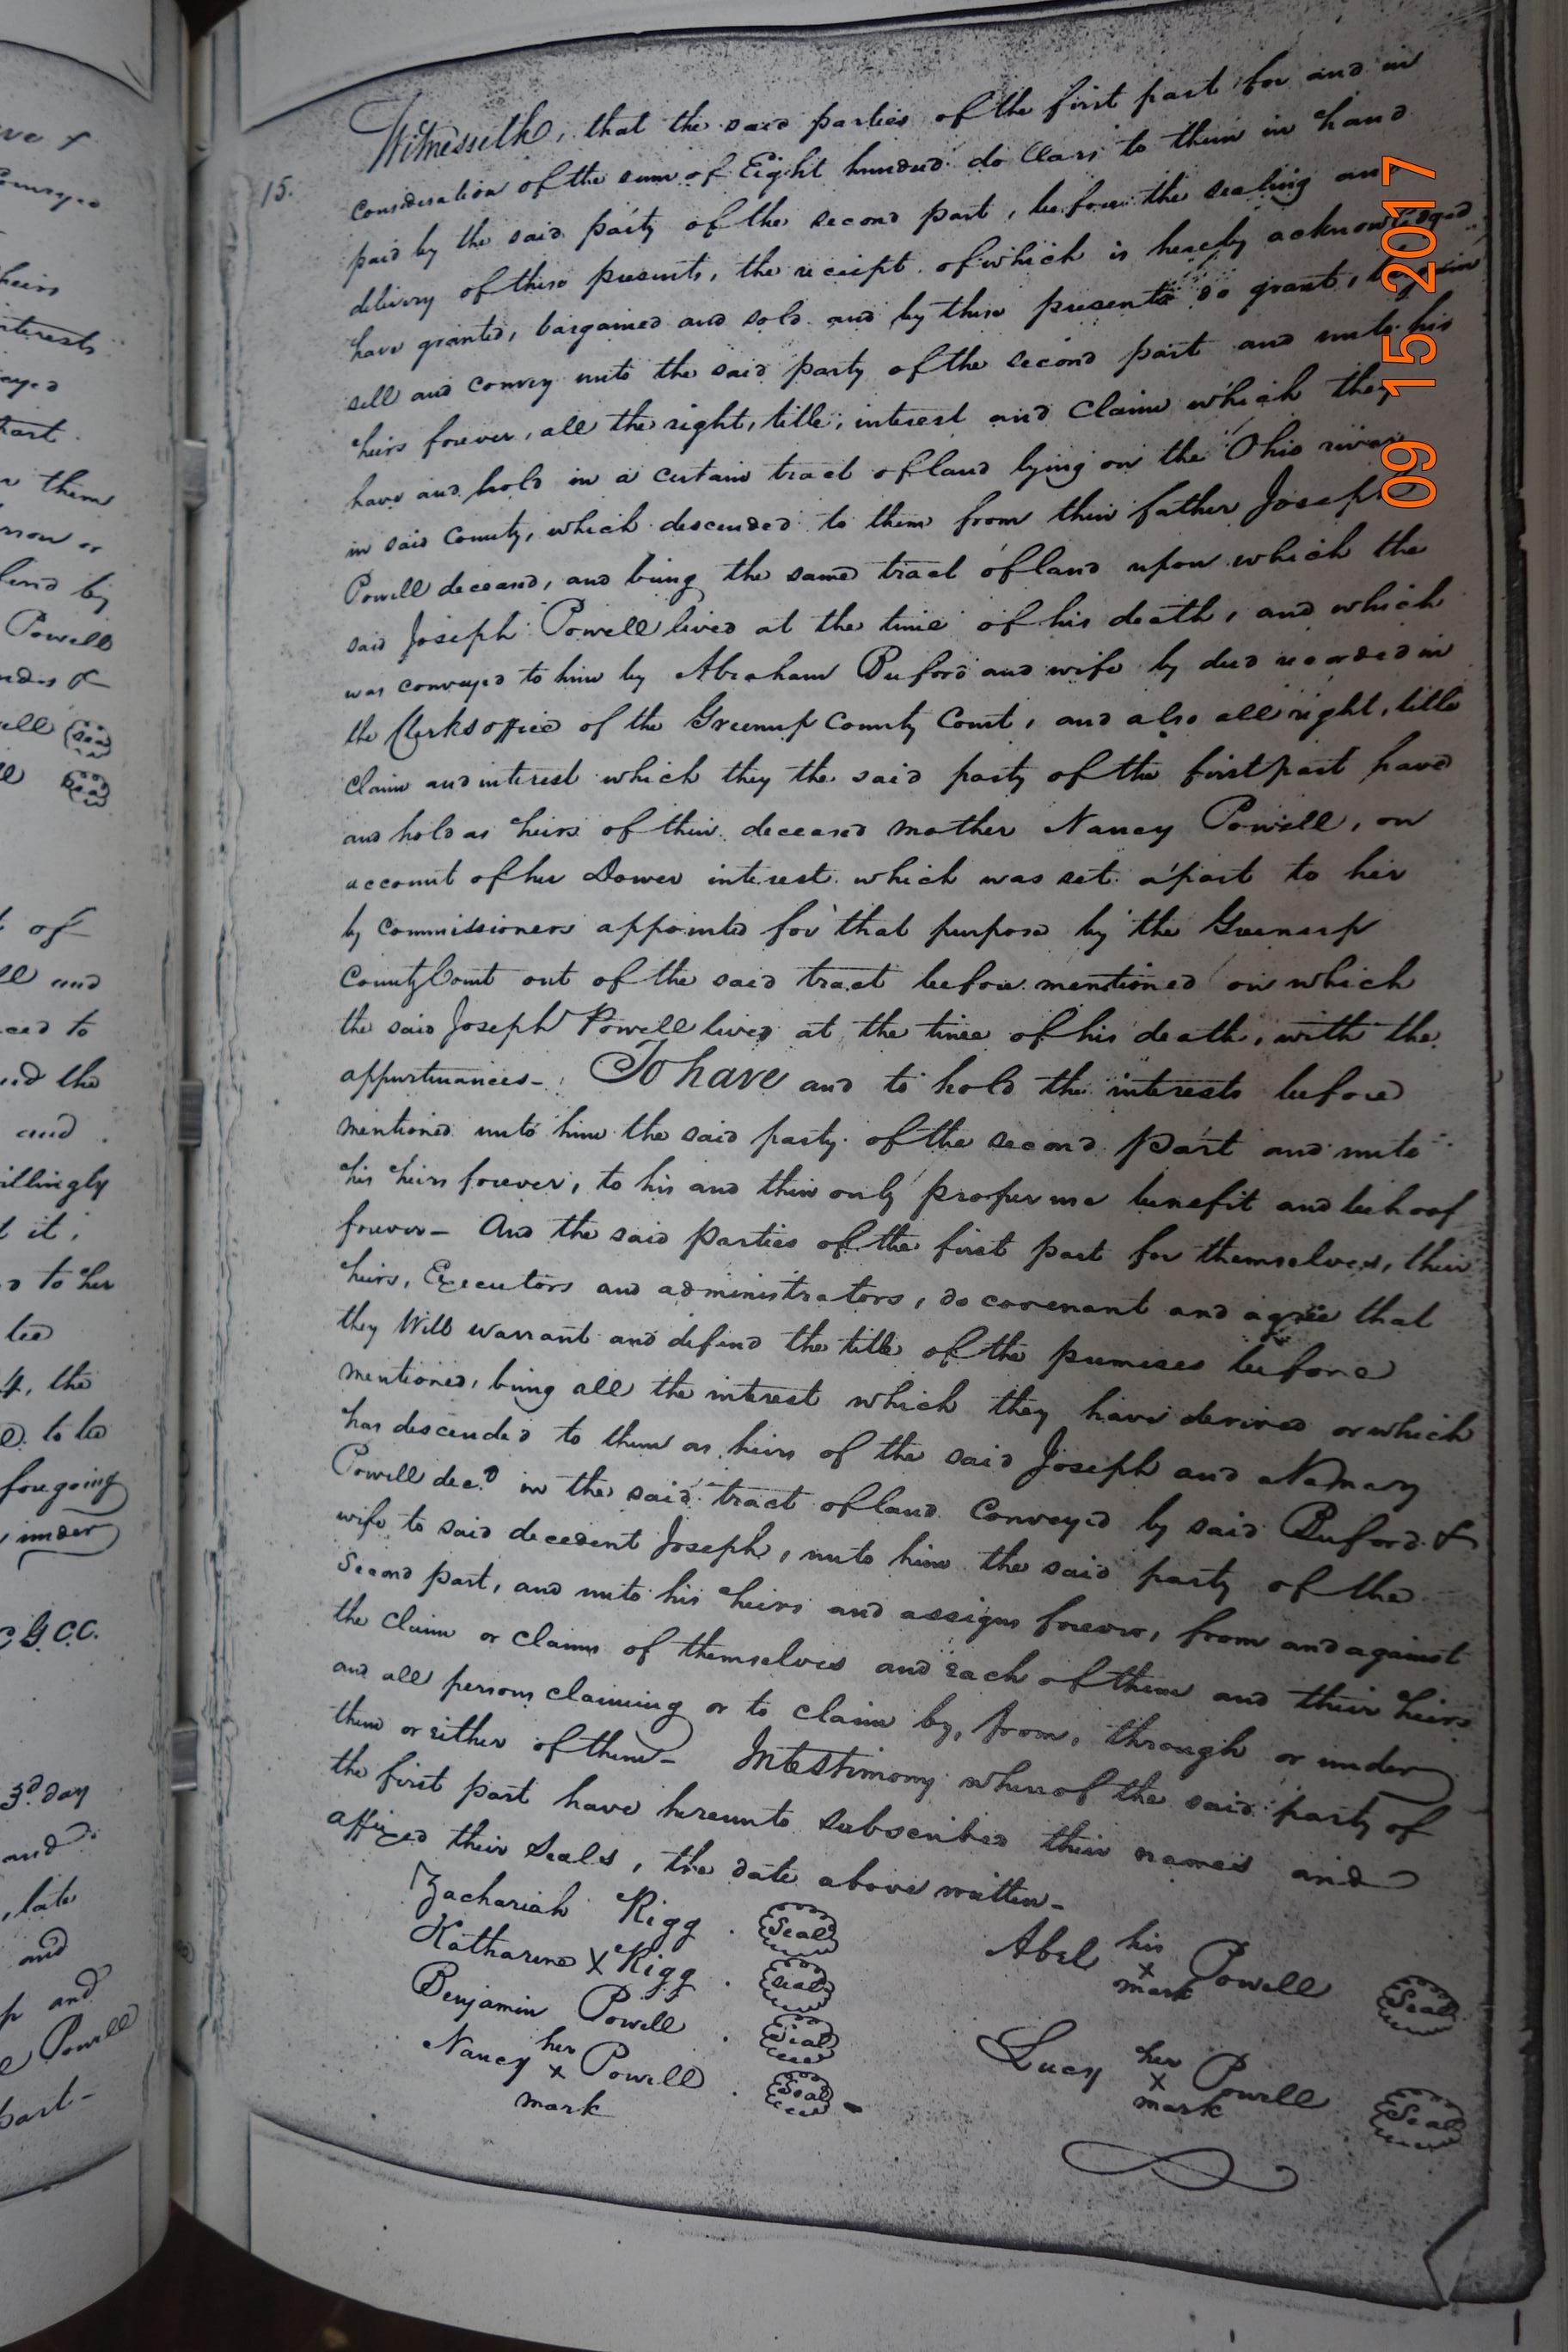 ve &
heirs
interests
eyed
part.
them
or
by
Powell
&
ell (Seal)
(Seal)
of
ll and
ced to
and the
and
willingly
t it,
to her
4, the
to be
foregoing
under
G.C.C.
3d day
and
late
and
and
Powell
part-
15.
Witnesseth, that the said parties of the first part for and in
consideration of the sum of Eight hundred dollars to them in hand
paid by the said party of the second part, before the sealing and
delivery of these presents, the receipt of which is hereby acknowledged
have granted, bargained and sold and by these presents do grant, bargain
sell and convey unto the said party of the second part and unto his
heirs forever, all the right, title, interest and claim which they
have and hold in a certain tract of land lying on the Ohio river
in said County, which descended to them from their father Joseph
Powell deceased, and being the same tract of land upon which the
said Joseph Powell lived at the time of his death, and which
was conveyed to him by Abraham Buford and wife by deed recorded in
the Clerks office of the Greenup County Court, and also all right, title
claim and interest which they the said party of the first part have
and hold as heirs of their deceased mother Nancy Powell, on
account of her Dower interest which was set apart to her
by Commissioners appointed for that purpose by the Greenup
County Court out of the said tract before mentioned on which
the said Joseph Powell lived at the time of his death, with the
appurtenances- To have and to hold the interests before
mentioned unto him the said party of the second part and unto
his heirs forever, to his and their only proper use benefit and behoof
forever- And the said parties of the first part for themselves, their
heirs, Executors and administrators, do covenant and agree that
they Will warrant and defend the title of the premises before
mentioned, being all the interest which they have derived or which
has descended to them as heirs of the said Joseph and Nancy
Powell decd in the said tract of land conveyed by said Buford &
wife to said decedent Joseph, unto him the said party of the
Second part, and unto his heirs and assigns forever, from and against
the claim or claims of themselves and each of them and their heirs
and all persons claiming or to claim by, from, through or under
them or either of them- In testimony whereof the said party of
the first part have hereunto subscribed their names and
affixed their Seals, the date above written-
Zachariah Rigg . (Seal)
Katharine X Rigg . (Seal)
Benjamin Powell . (Seal)
Nancy her x mark Powell . (Seal)
Abel his x mark Powell (Seal)
Lucy her x mark Powell (Seal)
09 15 2017